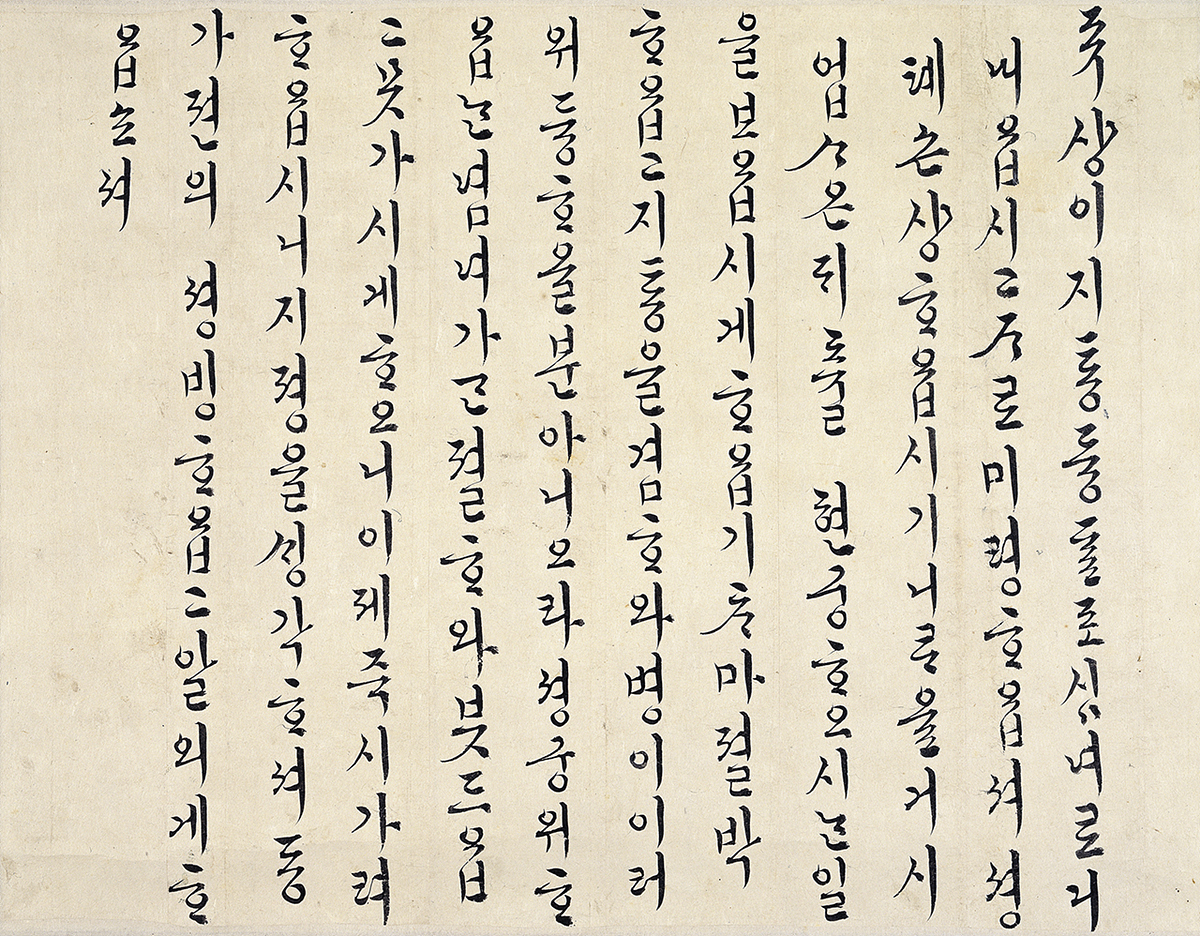 쥬샹이지통듕ᄃᆞᆯ포심녀로디
내옵시고ᄌᆞ로미령ᄒᆞ옵셔셩
톄손샹ᄒᆞ옵시기니 거시
업ᄉᆞ온 현궁ᄒᆞ오시ᄂᆞᆫ일
을보옵시게ᄒᆞ옵기ᄎᆞ마졀박
ᄒᆞ옵고지통을겸ᄒᆞ와병이이러
위듕ᄒᆞ올분아니오라셩궁위ᄒᆞ
옵ᄂᆞᆫ념녀가ᄀᆞᆫ졀ᄒᆞ와븟드옵
고못가시게ᄒᆞ오니이졔즉시가려
ᄒᆞ옵시니지졍을ᄉᆡᆼ각ᄒᆞ셔동
가젼의 셩빙ᄒᆞ옵고알외게ᄒᆞ
옵쇼셔